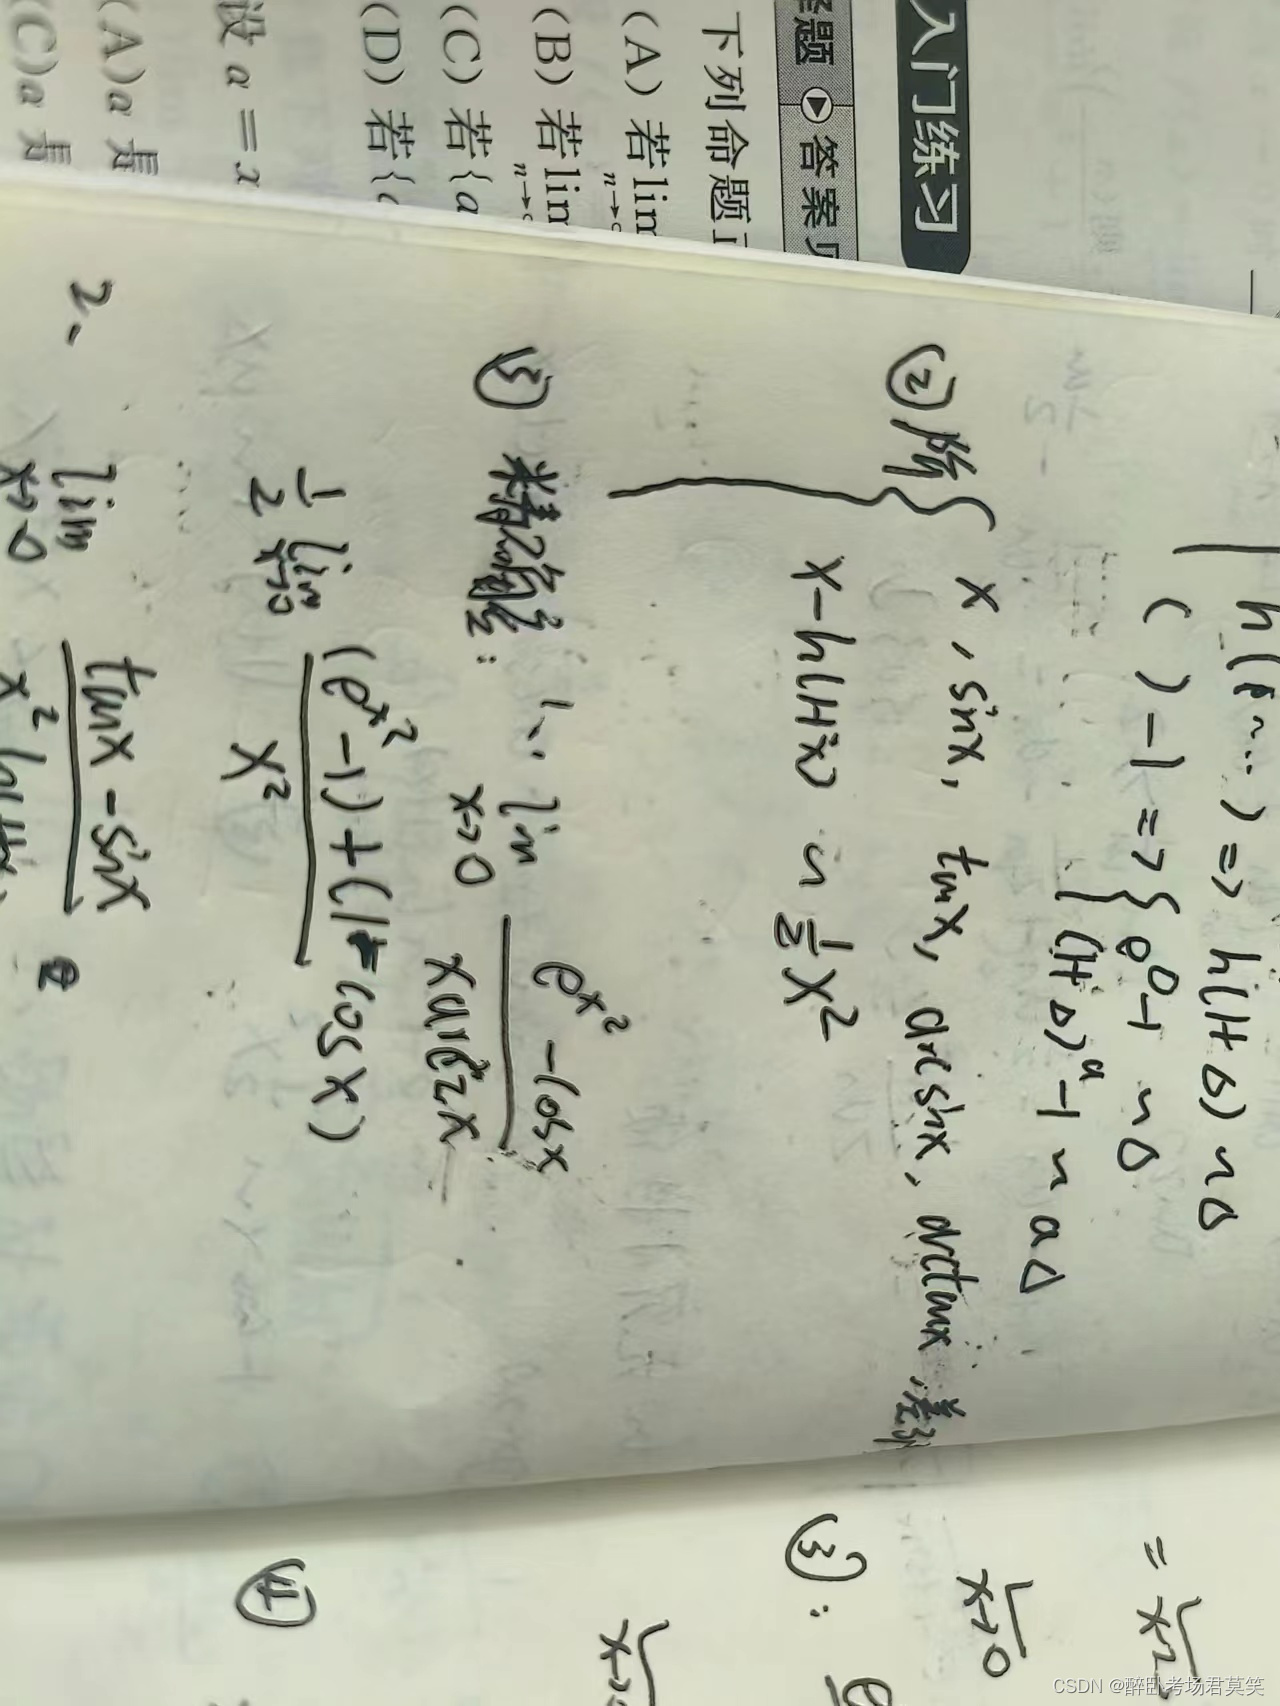 入门练习
答案
下列命题
(A) 若lim
n→
(B) 若lim
n→
(C) 若{a
(D) 若{
设 a = x
(A)a 是
(C)a 是
ln(…) => ln(1+Δ) ~ Δ
( ) - 1 => { e^Δ - 1 ~ Δ
(1+Δ)^a - 1 ~ aΔ
② 阶 { x, sinx, tanx, arcsinx, arctanx
x - ln(1+x) ~ 1/2 x²
③ 1、 lim x→0 (e^x² - cosx) / (x arc 2x)
1/2 lim x→0 ((e^x² - 1) + (1 - cosx)) / x²
2、 lim x→0 (tanx - sinx) / (x² ln(1+x
= x→
x→0
③:
x→
④
CSDN @醉卧考场君莫笑